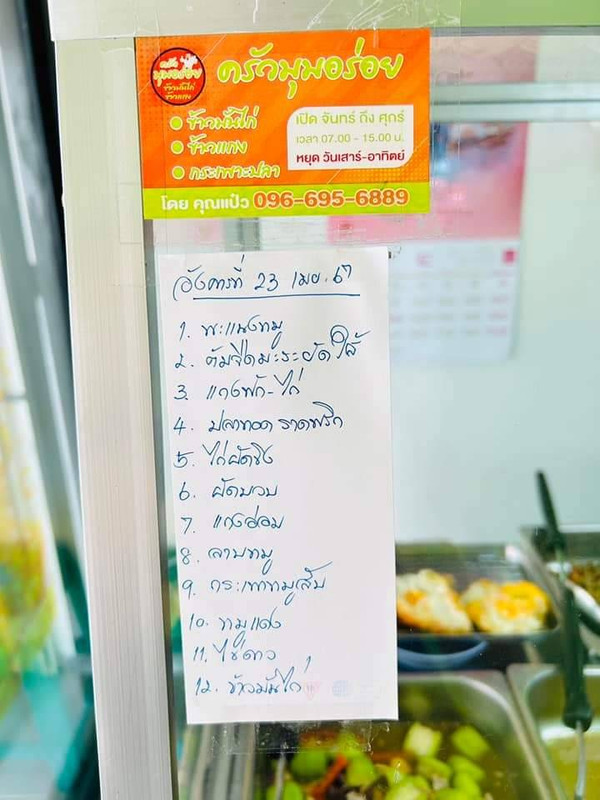 ครัว
มุมอร่อย
ข้าวมันไก่
ข้าวแกง
ครัวมุมอร่อย
ข้าวมันไก่
ข้าวแกง
กระเพาะปลา
เปิด จันทร์ ถึง ศุกร์
เวลา 07.00 - 15.00 น.
หยุด วันเสาร์-อาทิตย์
โดย คุณแป๋ว 096-695-6889
อังคารที่ 23 เมย. 67
1. พะแนงหมู
2. ต้มจืดมะระยัดไส้
3. แกงฟัก-ไก่
4. ปลาทอดราดพริก
5. ไก่ผัดขิง
6. ผัดบวบ
7. แกงอ่อม
8. ลาบหมู
9. กระเพาหมูสับ
10. หมูแดง
11. ไข่ดาว
12. ข้าวมันไก่